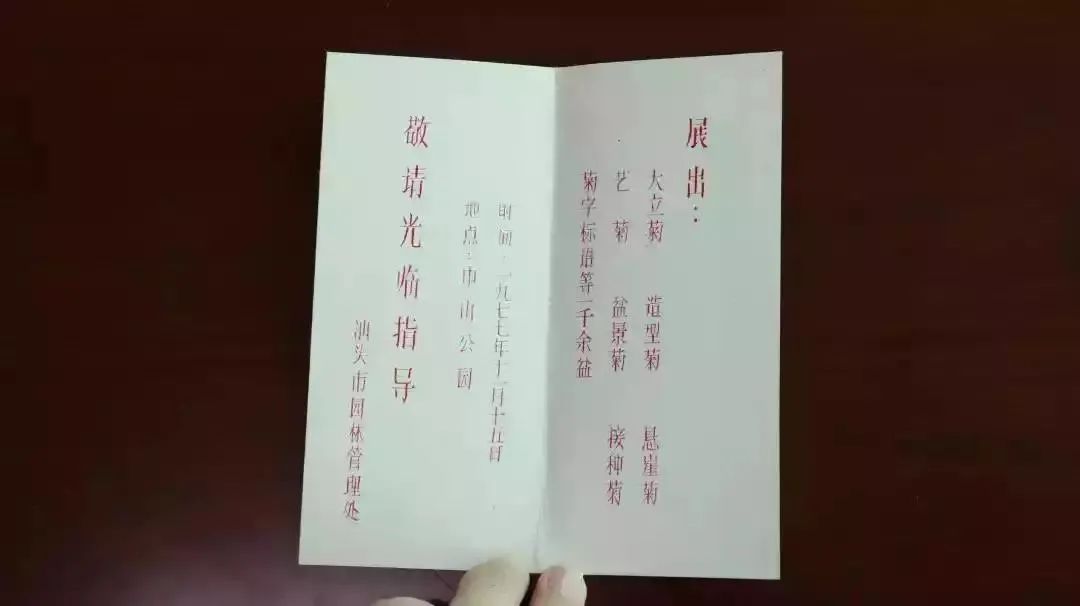 展出：
大立菊 造型菊 悬崖菊
艺菊 盆景菊 接种菊
菊字标语等一千余盆
时间：一九七七年十一月十五日
地点：中山公园
敬请光临指导
汕头市园林管理处